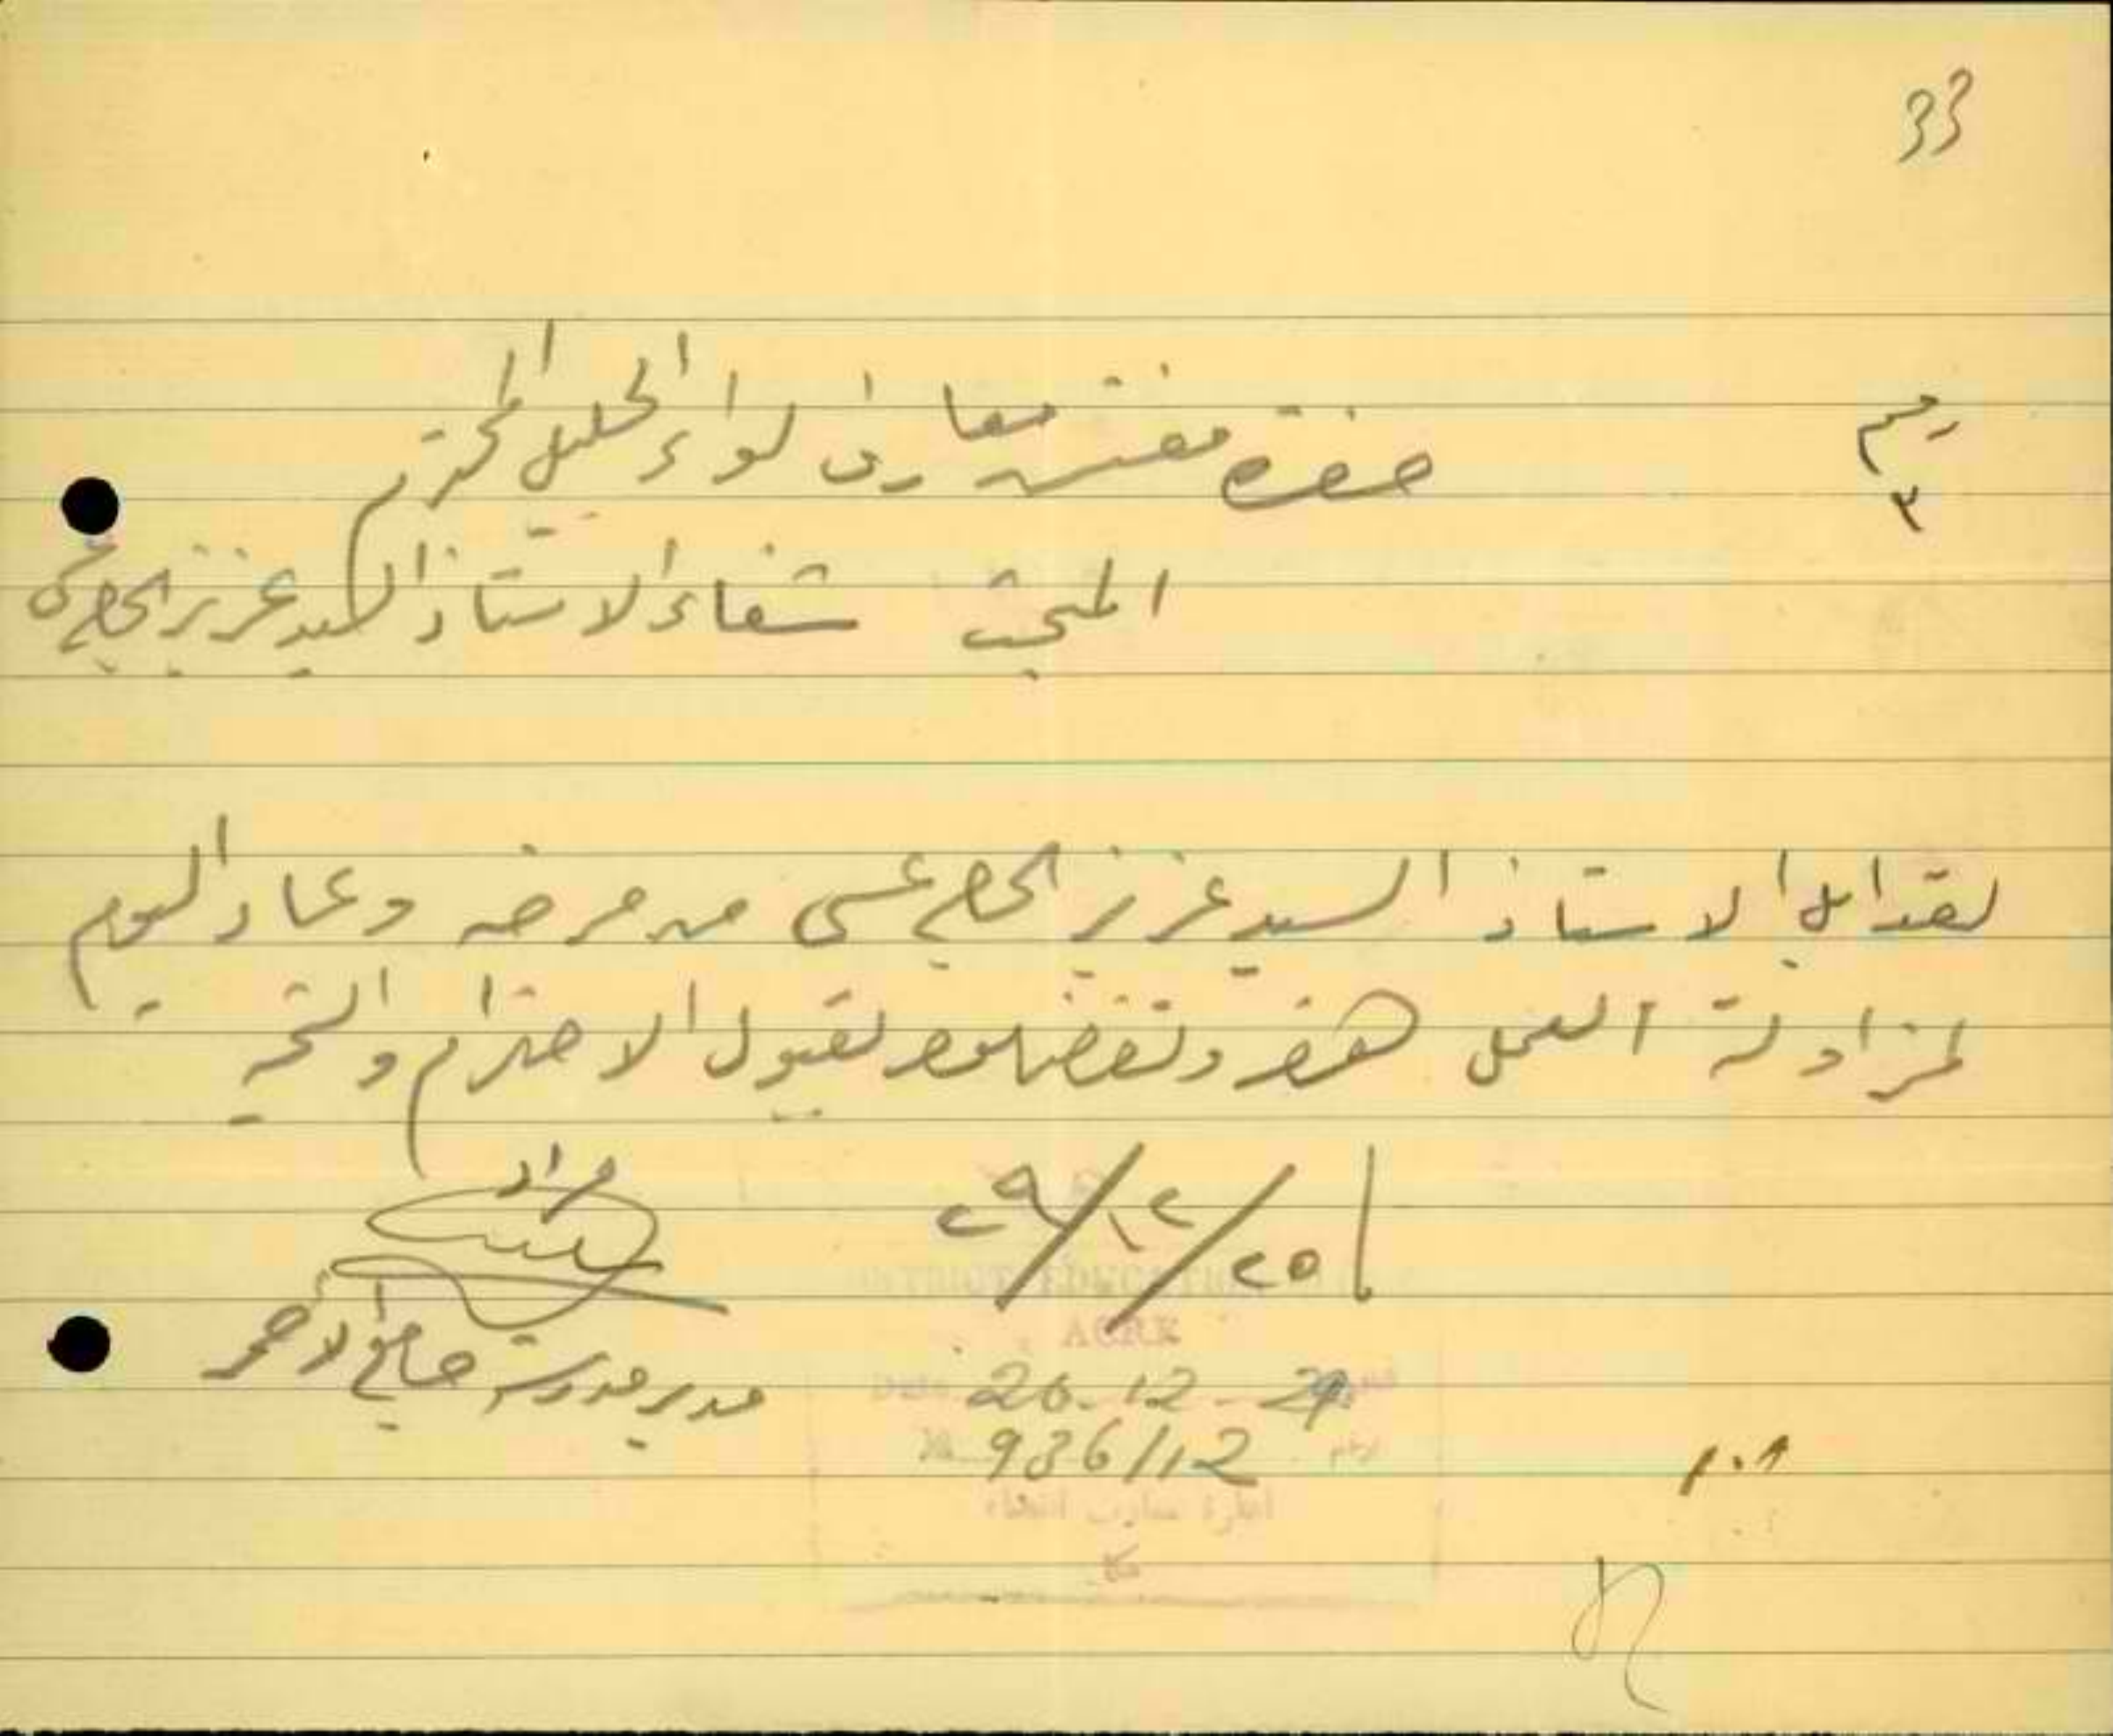 33
رسم
٣
حضرة مفتش معارف لواء الجليل المحترم
المبحث شفاء الاستاذ السيد عزيز الحاج عيسى
لقد ابل الاستاذ السيد عزيز الحاج عيسى من مرضه وعاد اليوم
لمزاولة العمل هذا وتفضلوا بقبول الاحترام والتحية
٢٥/١٢/٢٩
مراد
مدير مدرسة
DISTRICT EDUCATION
ACRE
Date 26-12-29
No. 936/12 رقم
ادارة معارف القضاء
عكا